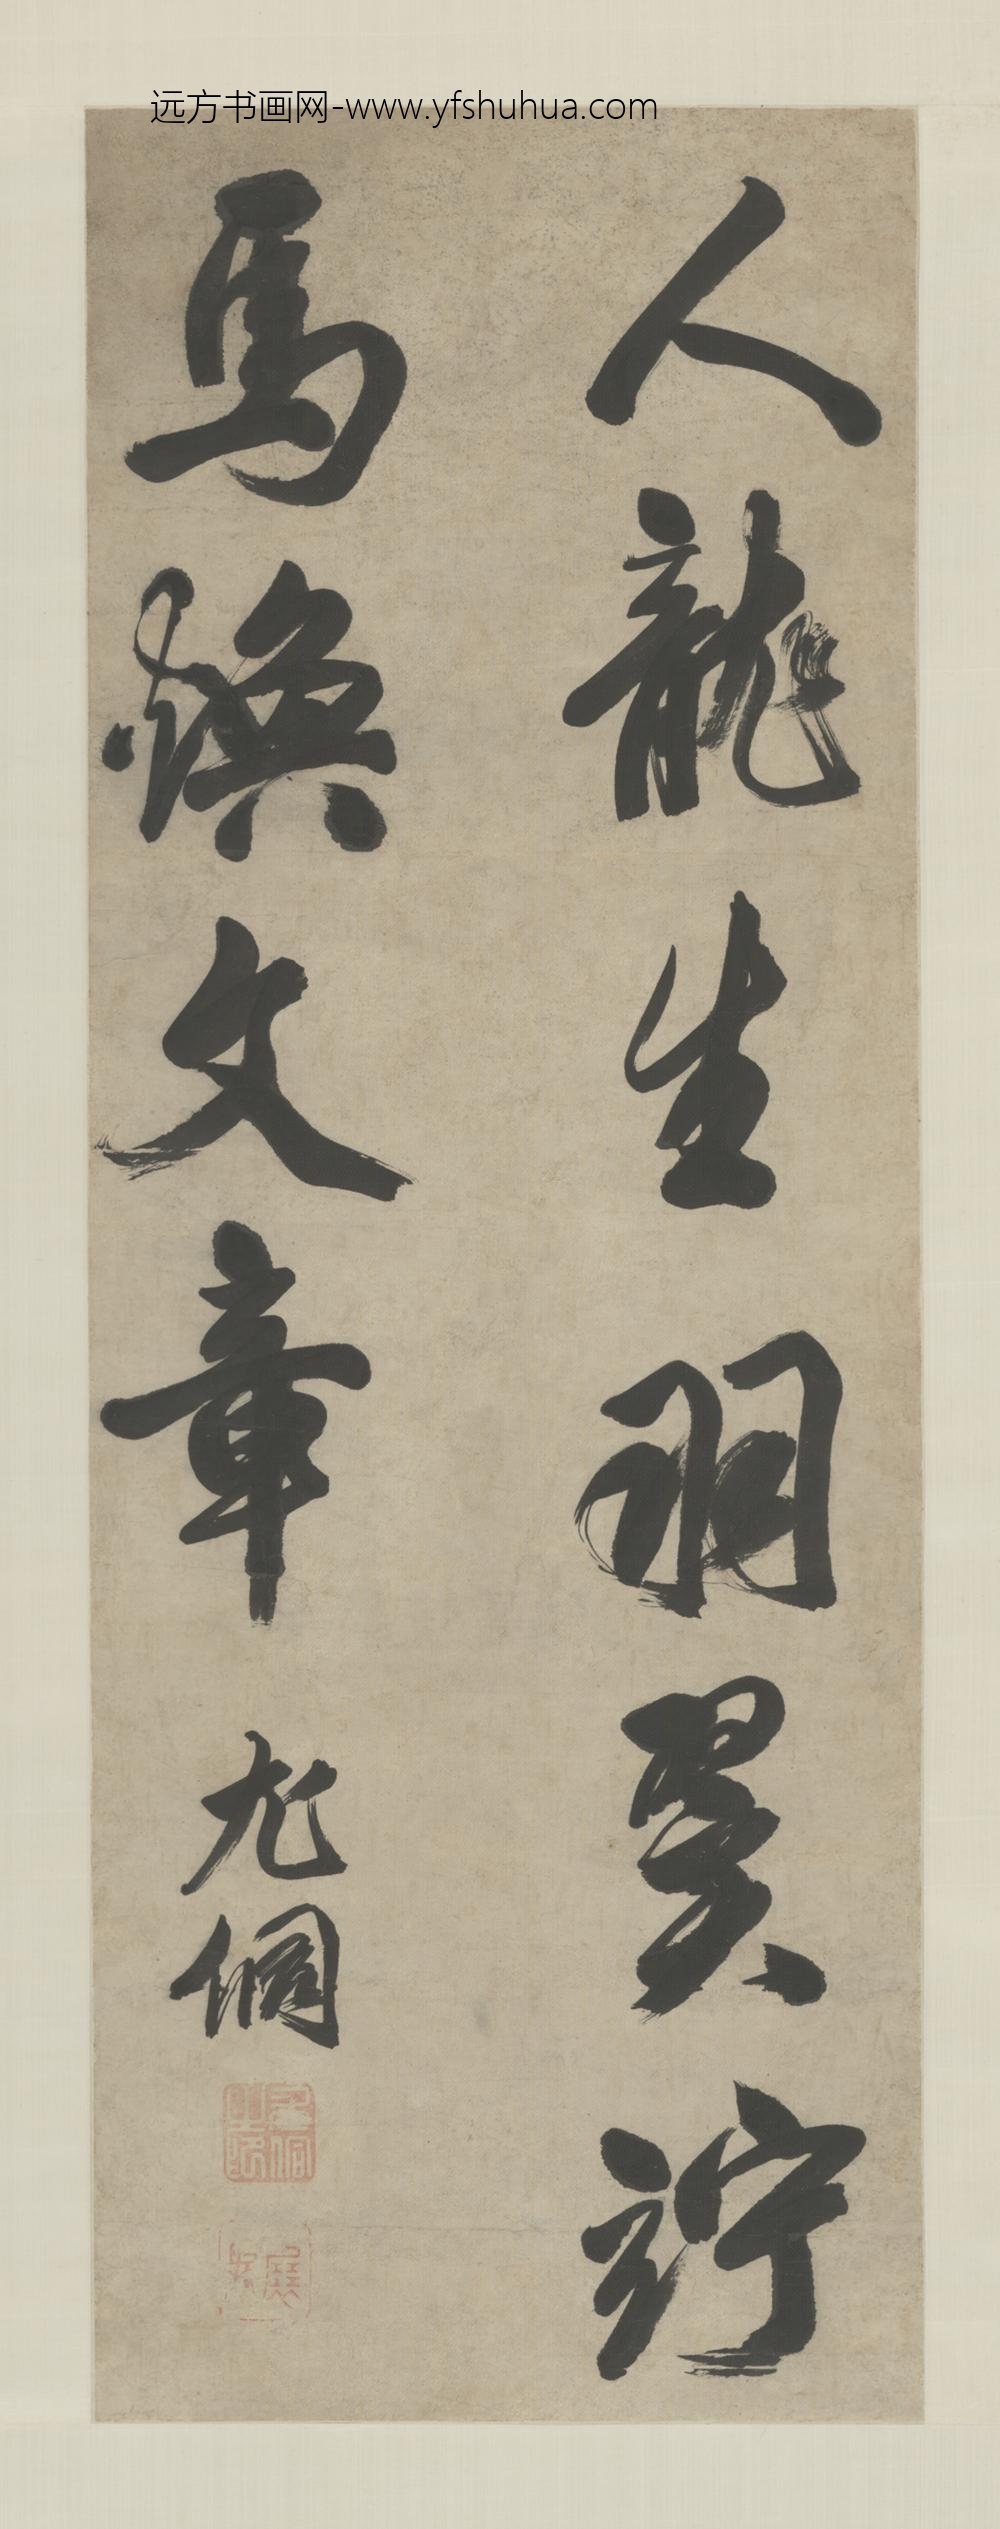 远方书画网-www.yfshuhua.com
人龍生羽翼竚
馬煥文章 尤侗